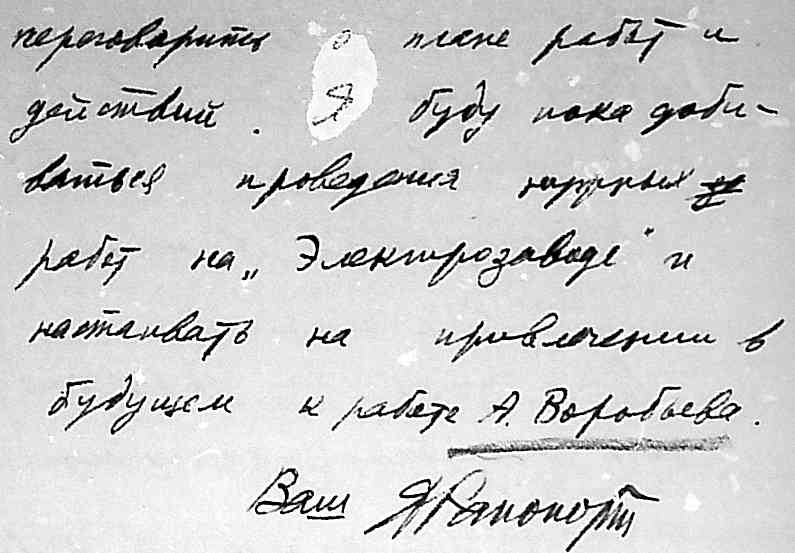 переговорить о плане работ и
действий. Я буду пока доби-
ваться проведения нужных
работ на „Электрозаводе" и
настаивать на привлечении в
будущем к работе А. Воробьева.
Ваш Я Рапопорт